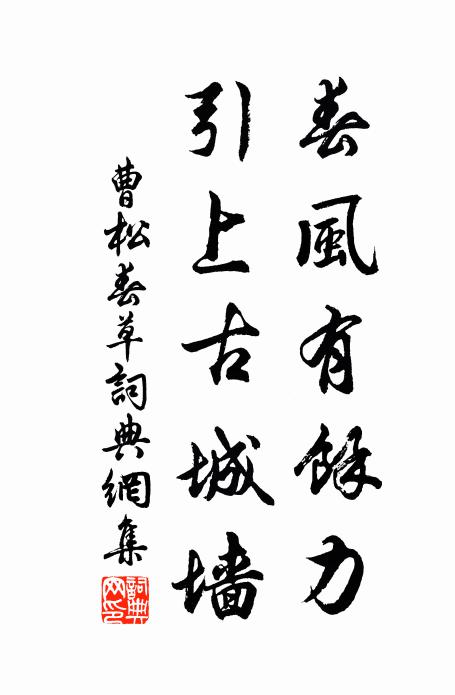 春風有餘力
引上古城墻
曹松春草詞典網集
詞典網印